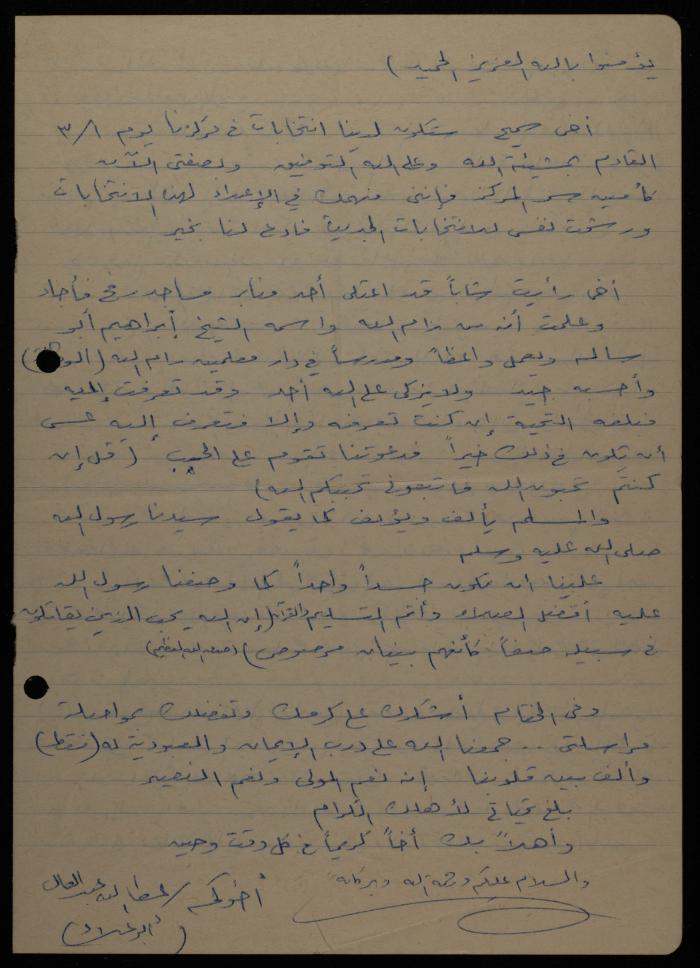 يؤمنوا بالله العزيز الحميد )
أخي سميح ستكون لدينا انتخابات في مركزنا يوم ٣/١
القادم بمشيئة الله وعلى الله التوفيق وبصفتي الآن
كأمين سر المركز فإنني منهمك في الإعداد لهذه الانتخابات
ورشحت نفسي للانتخابات الجديدة فادع لنا بخير
أخي رأيت شاباً قد اعتلى أحد منابر مساجد رفح فأجاد
وعلمت أنه من رام الله واسمه الشيخ إبراهيم أبو
سالم ويعمل واعظاً ومدرساً في دار معلمين رام الله
وأحسبه جيد ولا يزكى على الله أحد وقد تعرفت إليه
فبلغه التحية إن كنت تعرفه وإلا فتعرف إليه عسى
أن يكون في ذلك خيراً فدعوتنا تقوم على الحب ( قل إن
كنتم تحبون الله فاتبعوني يحببكم الله )
والمسلم يألف ويؤلف كما يقول سيدنا رسول الله
صلى الله عليه وسلم
علينا أن نكون جسداً واحداً كما وصفنا رسول الله
عليه أفضل الصلاة وأتم التسليم والقرآن ( إن الله يحب الذين يقاتلون
في سبيله صفاً كأنهم بنيان مرصوص ) ( صدق الله العظيم )
وفي الختام أشكرك على كرمك وتفضلك بمواصلة
مراسلتي .. جمعنا الله على درب الإيمان والعبودية له ( فقط )
وألف بين قلوبنا إنه نعم المولى ونعم النصير
بلغ تحياتي لأهلك الكرام
وأهلاً بك أخاً كريماً في كل وقت وحين
والسلام عليكم ورحمة الله وبركاته
أخوكم / عطا الله عبد العال
( أبو علاء )